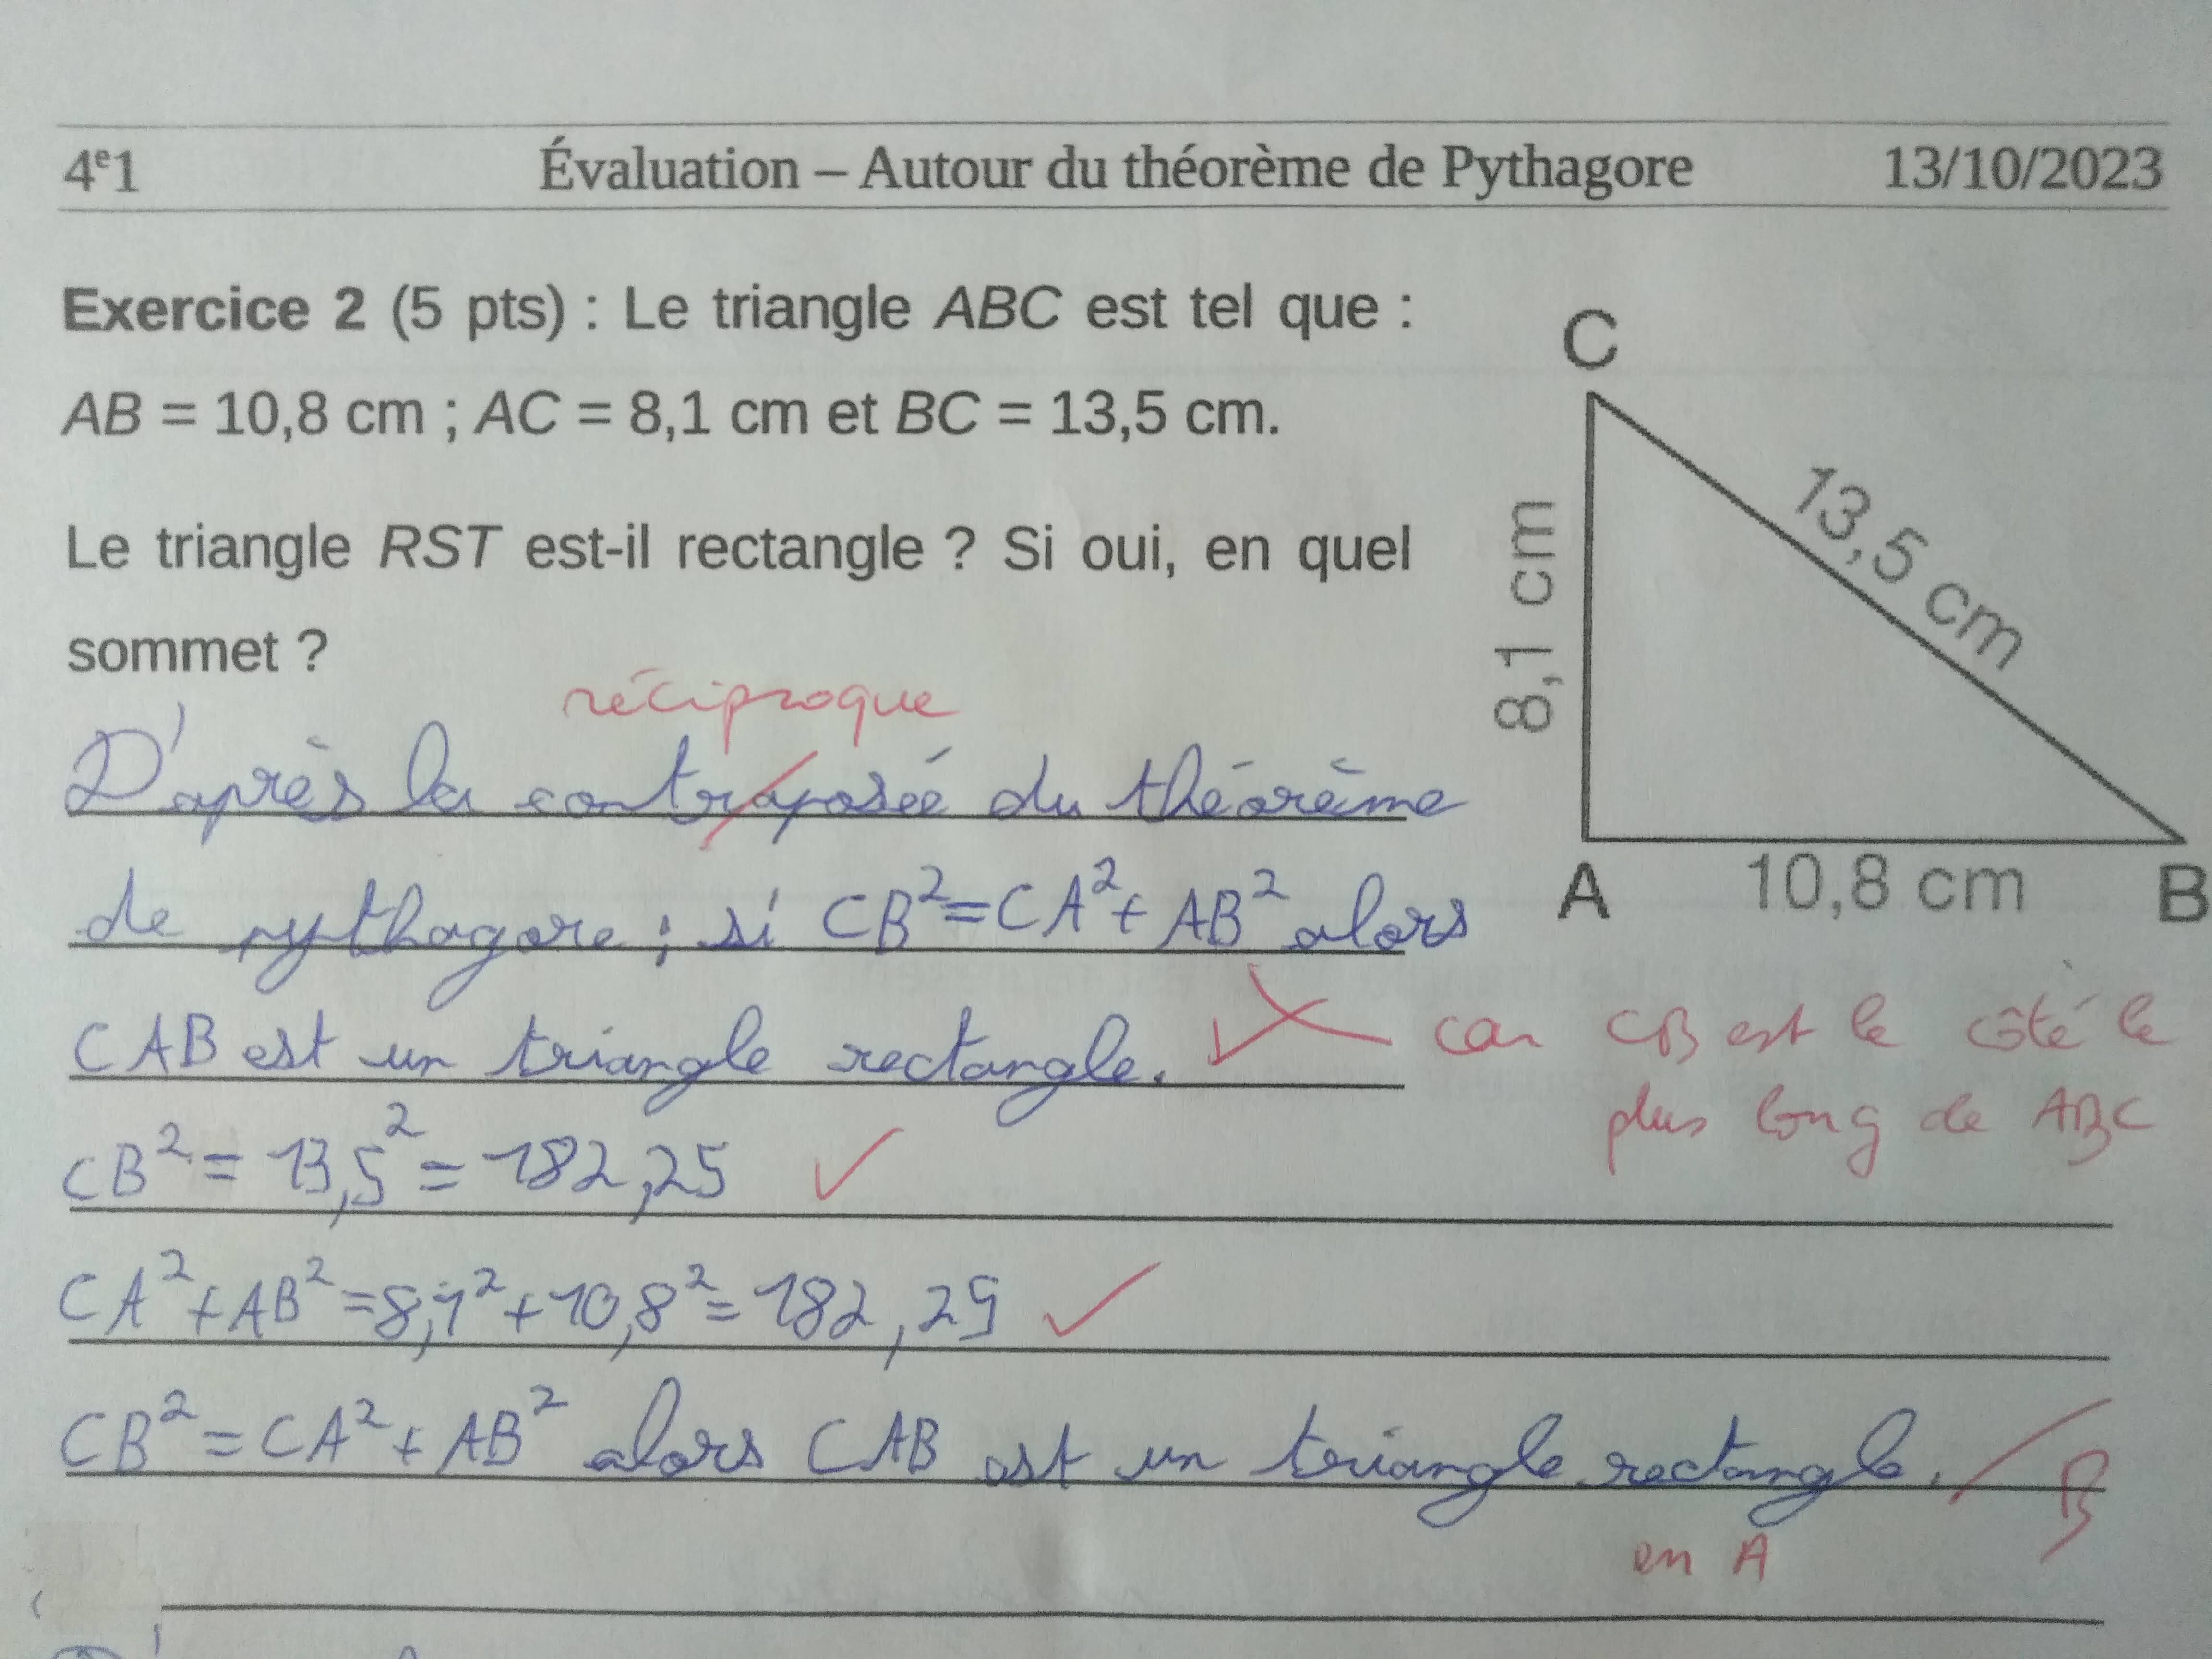 4e1 Évaluation – Autour du théorème de Pythagore 13/10/2023
Exercice 2 (5 pts) : Le triangle ABC est tel que :
AB = 10,8 cm ; AC = 8,1 cm et BC = 13,5 cm.
Le triangle RST est-il rectangle ? Si oui, en quel
sommet ?
C
13,5 cm
8,1 cm
A
10,8 cm
B
réciproque
D'après la contraposée du théorème
de pythagore ; si CB²=CA²+AB² alors
CAB est un triangle rectangle.
car CB est le côté le
plus long de ABC
CB² = 13,5² = 182,25
CA²+AB²=8,1²+10,8²=182,25
CB²=CA²+AB² alors CAB est un triangle rectangle.
en A